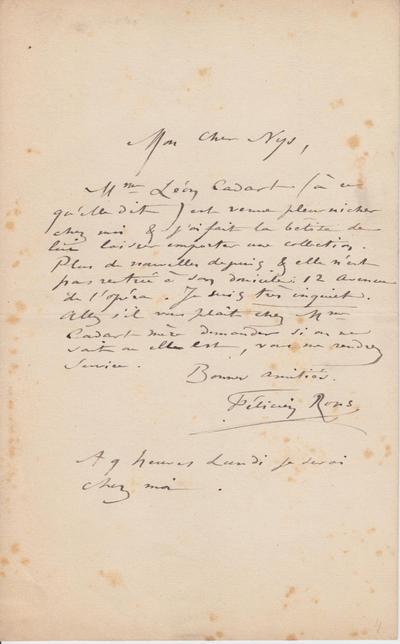 Mon cher Nys,
Mme Léon Cadart (à ce
qu'elle dit) est venue pleurnicher
chez moi & j'ai fait la bêtise de
lui laisser emporter une collection.
Plus de nouvelles depuis & elle n'est
pas rentrée à son domicile 12 Avenue
de l'opéra. Je suis très inquiet.
Allez s'il vous plaît chez Mme
Cadart mère demander si on ne
sait où elle est, vous me rendrez
service.
Bonnes amitiés.
Félicien Rops
A 9 heures Lundi je serai
chez moi.
4